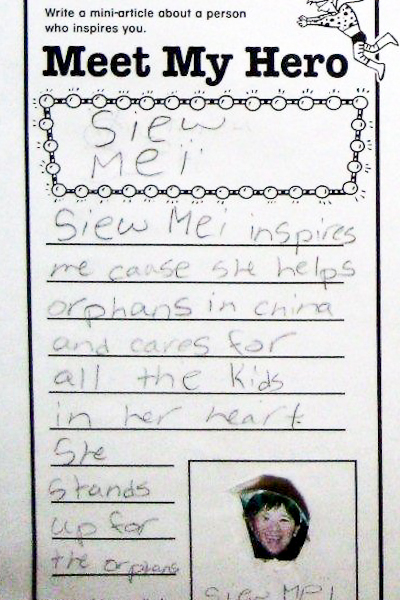 Write a mini-article about a person
who inspires you.
Meet My Hero
Siew
Mei
Siew Mei inspires
me cause she helps
orphans in china
and cares for
all the kids
in her heart.
She
Stands
up for
the orphans
Siew Mei